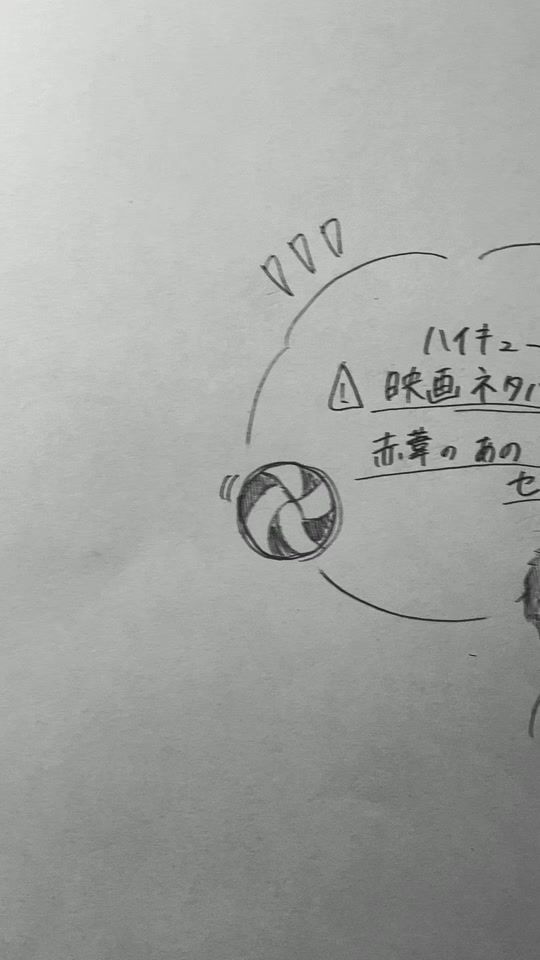 ハイキュー
映画 ネタバ
赤葦の あの
セ